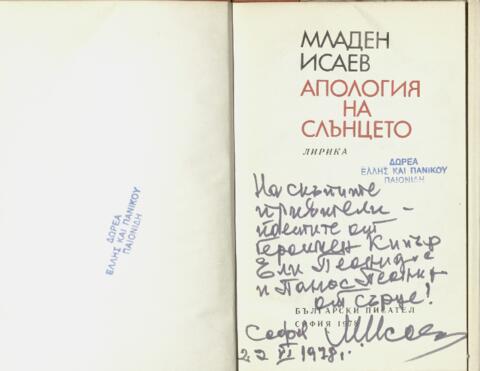 ΔΩΡΕΑ
ΕΛΛΗΣ ΚΑΙ ΠΑΝΙΚΟΥ
ΠΑΙΟΝΙΔΗ
МЛАДЕН
ИСАЕВ
АПОЛОГИЯ
НА
СЛЪНЦЕТО
ЛИРИКА
ΔΩΡΕΑ
ΕΛΛΗΣ ΚΑΙ ΠΑΝΙΚΟΥ
ΠΑΙΟΝΙΔΗ
На скъпите
приятели –
поетите от
героичен Кипър
Ели
и Панос
от сърце!
БЪЛГАРСКИ ПИСАТЕЛ
СОФИЯ 1978
София МИсаев
22 VI 1978 г.